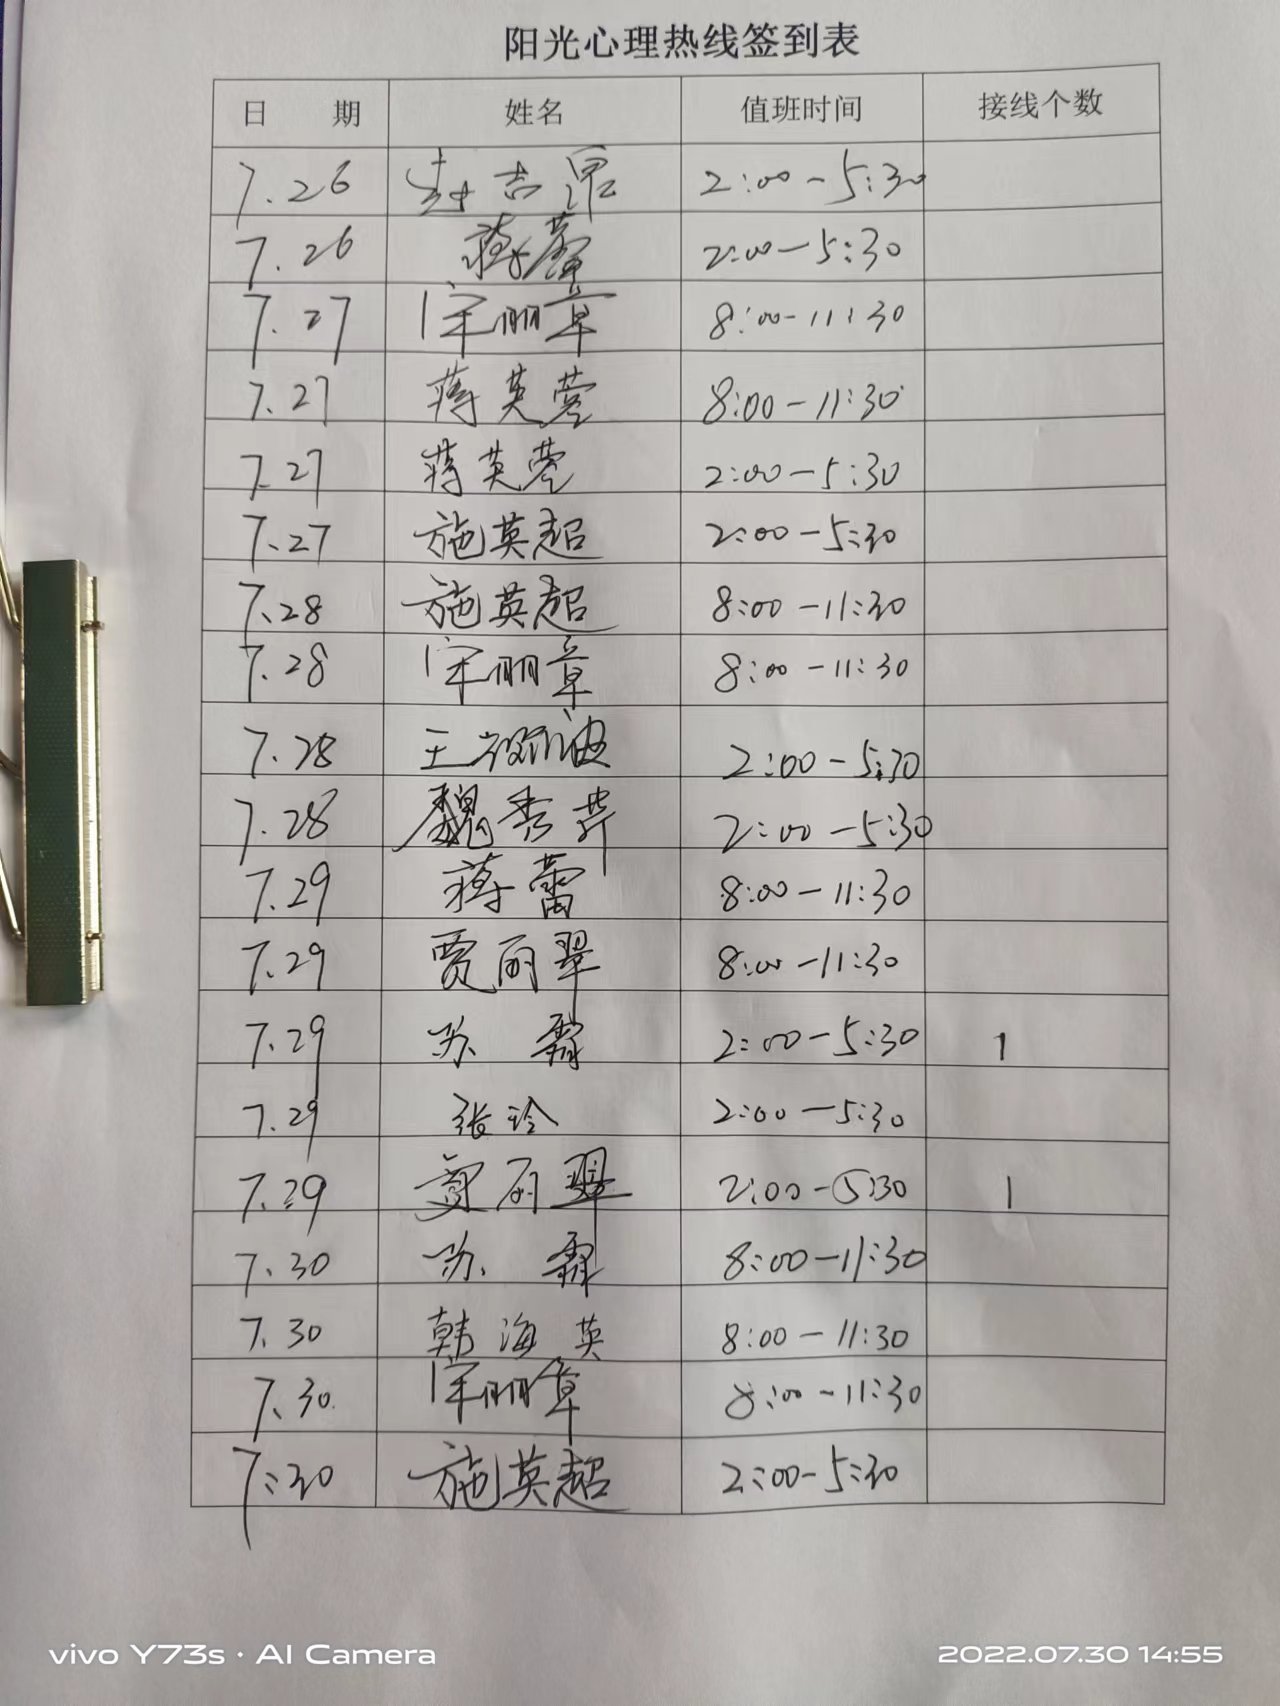 阳光心理热线签到表
日 期 姓名 值班时间 接线个数
7.26 封吉泉 2:00-5:30
7.26 蒋 2:00-5:30
7.27 宋丽章 8:00-11:30
7.27 蒋英蓉 8:00-11:30
7.27 蒋英蓉 2:00-5:30
7.27 施英超 2:00-5:30
7.28 施英超 8:00-11:30
7.28 宋丽章 8:00-11:30
7.28 王 2:00-5:30
7.28 魏秀芹 2:00-5:30
7.29 蒋蕾 8:00-11:30
7.29 贾丽翠 8:00-11:30
7.29 苏霞 2:00-5:30 1
7.29 张玲 2:00-5:30
7.29 贾丽翠 2:00-5:30 1
7.30 苏霞 8:00-11:30
7.30 韩海英 8:00-11:30
7.30 宋丽章 8:00-11:30
7.30 施英超 2:00-5:30
vivo Y73s · AI Camera 2022.07.30 14:55